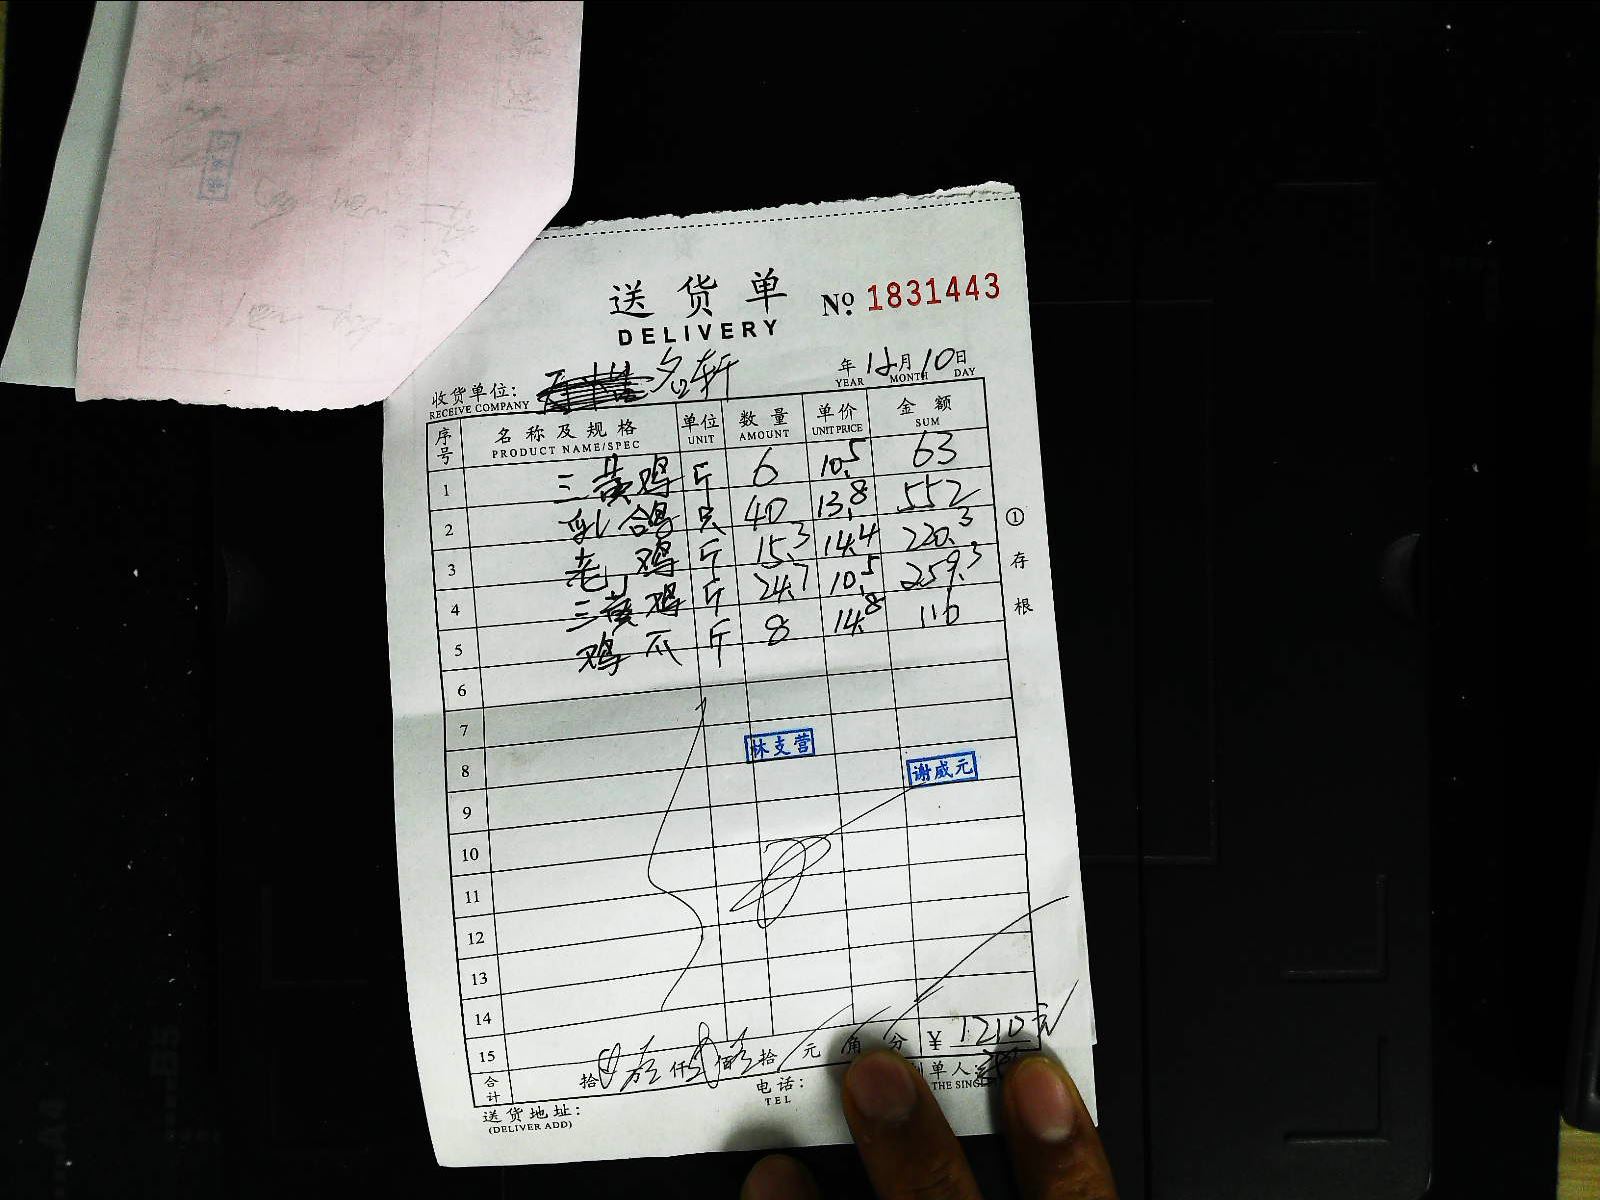 送货单
DELIVERY
№ 1831443
收货单位: 名轩
RECEIVE COMPANY
年 12月10日
YEAR MONTH DAY
序号 名称及规格 单位 数量 单价 金额
PRODUCT NAME/SPEC UNIT AMOUNT UNIT PRICE SUM
1 三黄鸡 斤 6 10.5 63
2 乳鸽 只 40 13.8 552
3 老鸡 斤 15.3 14.4 220.3
4 三黄鸡 斤 24.7 10.5 259.3
5 鸡爪 斤 8 14.8 116
6
7
8
9
10
11
12
13
14
15
①存根
林支营
谢威元
合计 拾 万 仟 佰 拾 元 角 分 ¥ 1210元
送货地址:
(DELIVER ADD)
电话:
TEL
单人:
THE SING